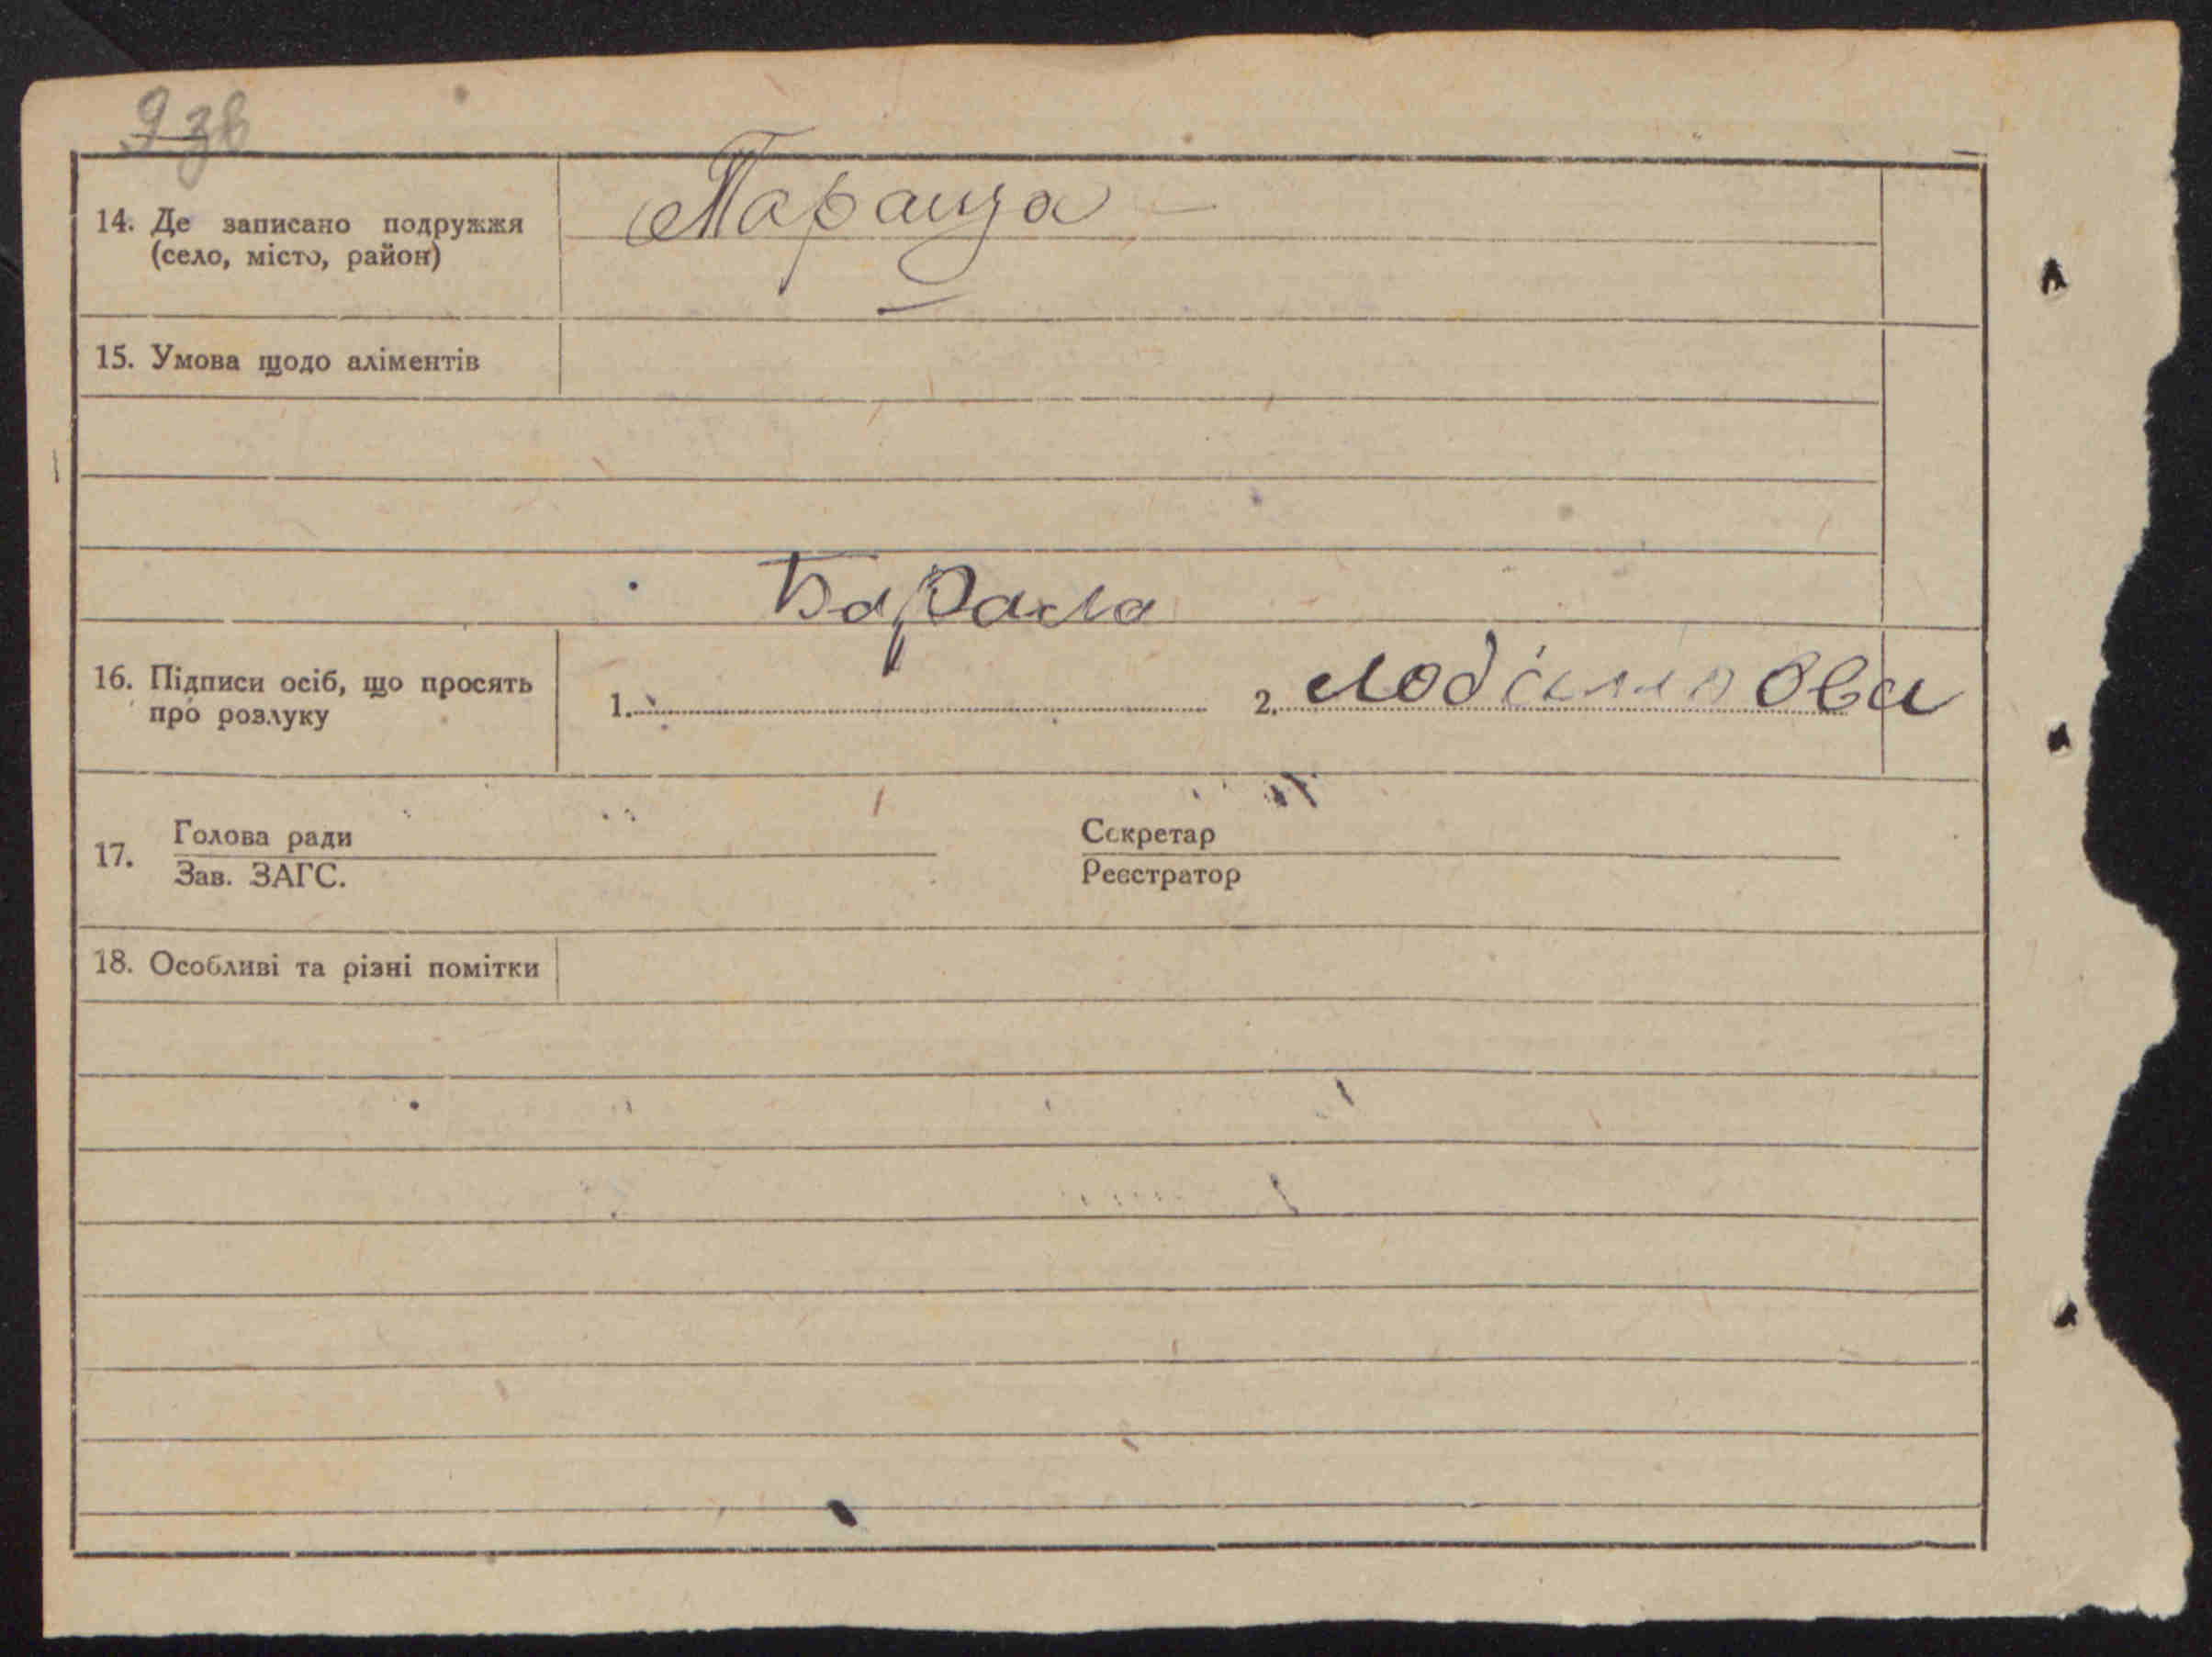 9 зв
14. Де записано подружжя (село, місто, район)
Тараща
15. Умова щодо аліментів
16. Підписи осіб, що просять про розлуку
1.
2.
17. Голова ради
Зав. ЗАГС.
Секретар
Реєстратор
18. Особливі та різні помітки